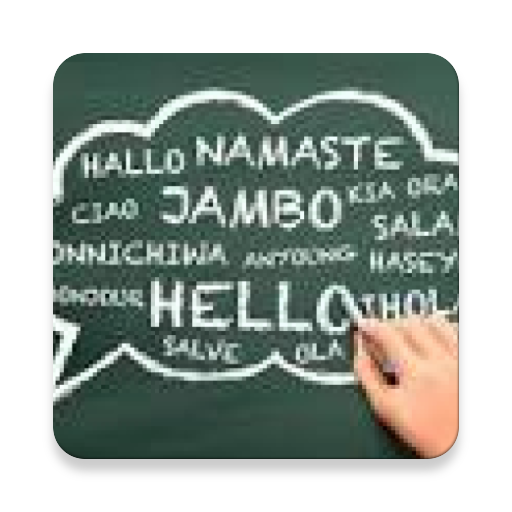 HALLO NAMASTE
CIAO JAMBO KIA ORA
SALA
ONNICHIWA ANTOUNG HASEY
HELLO
SALVE OLA